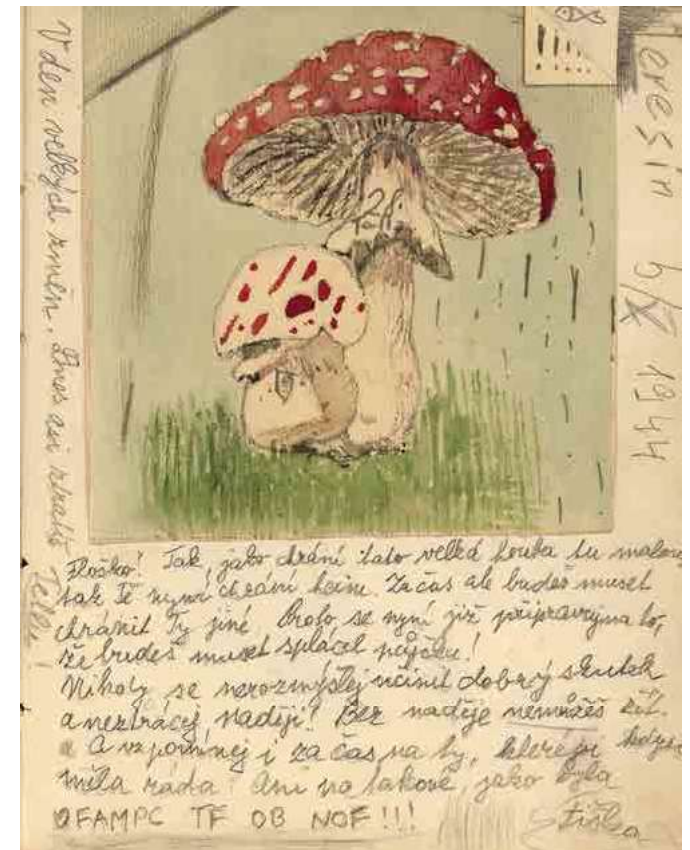 V den velkých změn. Dnes asi ztratíš
Tellu!
eresín 5/X 1944
28
Floško! Tak, jako chrání tato velká houba tu malou,
tak Tě nyní chrání heim. Za čas ale budeš muset
chránit Ty jiné. Proto se nyní již připravuj na to,
že budeš muset splácet půjčku!
Nikdy se nerozmýšlej učinit dobrý skutek
a neztrácej naději! Bez naděje nemůžeš žít.
A vzpomínej i za čas na ty, které jsi kdysi
měla ráda. Ani na takové, jako byla
OFAMPC TF OB NOF!!!